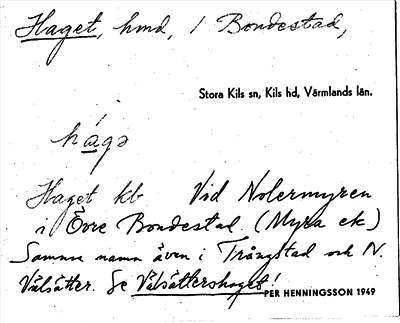 Haget, hmd, i Bondestad,
Stora Kils sn, Kils hd, Värmlands län.
hágə
Haget kb Vid Nolermyren
i Övre Bondestad. (Myra ek)
Samma namn även i Trångstad och N.
Vålsätter. Se Vålsättershaget!
PER HENNINGSSON 1949